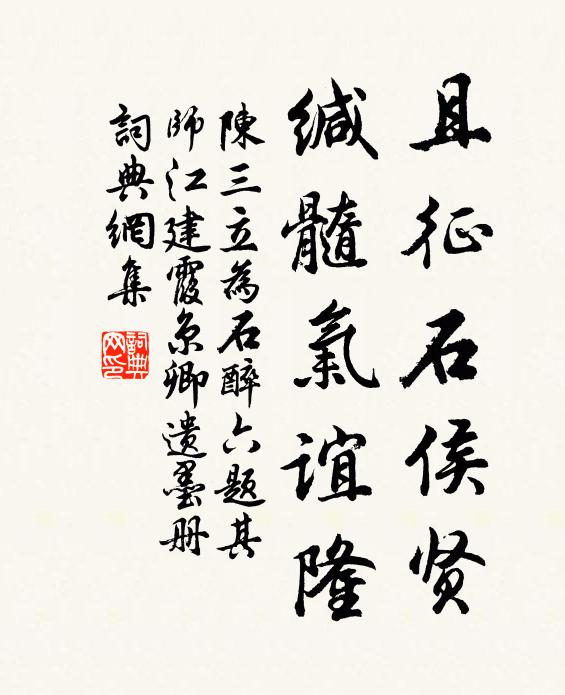 且征石侯贤
缄髓氣谊隆
陳三立為石醉六题其
師江建霞京卿遗墨册
詞典網集
詞典網印